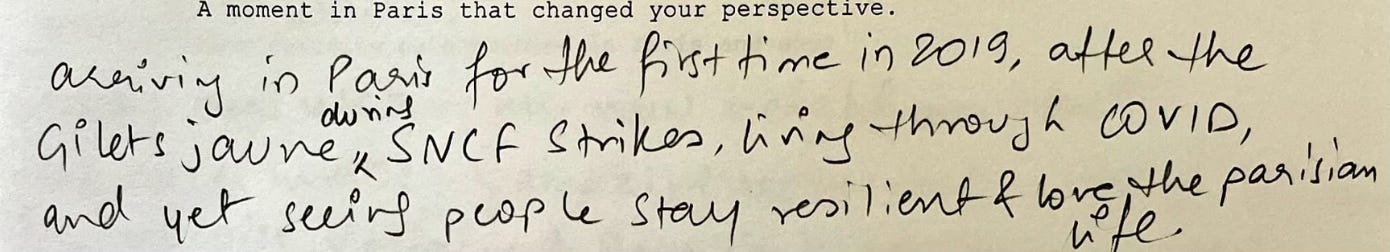 A moment in Paris that changed your perspective.
arriving in Paris for the first time in 2019, after the
Gilets jaune, during SNCF Strikes, living through COVID,
and yet seeing people stay resilient & love the parisian
life.